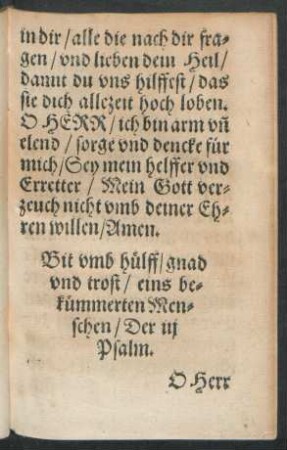 in dir / alle die nach dir fra-
gen / vnd lieben dein Heil /
damit du vns hilffest / das
sie dich allezeit hoch loben.
O HERR / ich bin arm vñ
elend / sorge vnd dencke für
mich / Sey mein helffer vnd
Erretter / Mein Gott ver-
zeuch nicht vmb deiner Eh-
ren willen / Amen.
Bit vmb hülff / gnad
vnd trost / eins be-
kümmerten Men-
schen / Der iij
Psalm.
O Herr